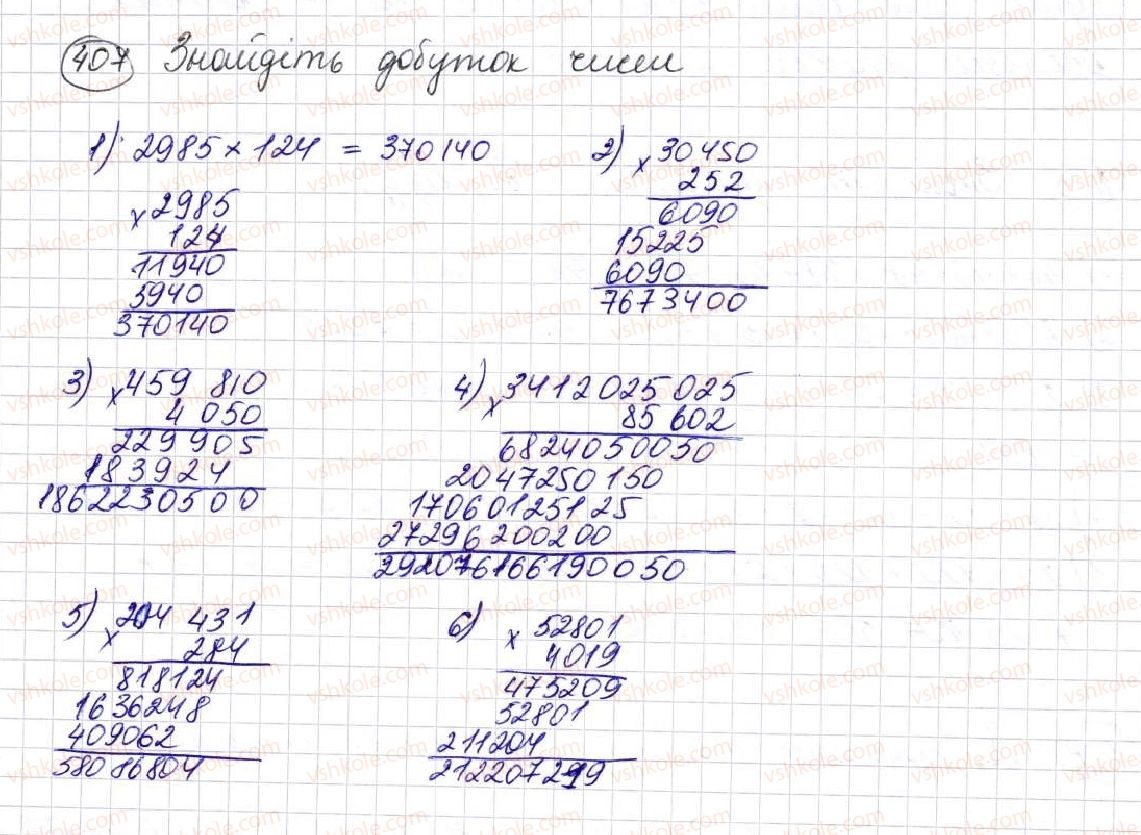 407 Знайдіть добуток чисел
1) 2985 × 124 = 370140
× 2985
124
11940
5940
370140
2) × 30450
252
6090
15225
6090
7673400
3) × 459 810
4 050
229905
183924
1862230500
4) × 3412025025
85 602
6824050050
2047250150
17060125125
27296200200
292076166190050
5) × 204 431
284
818124
1636248
409062
58086804
6) × 52801
4019
475209
52801
211204
212207299